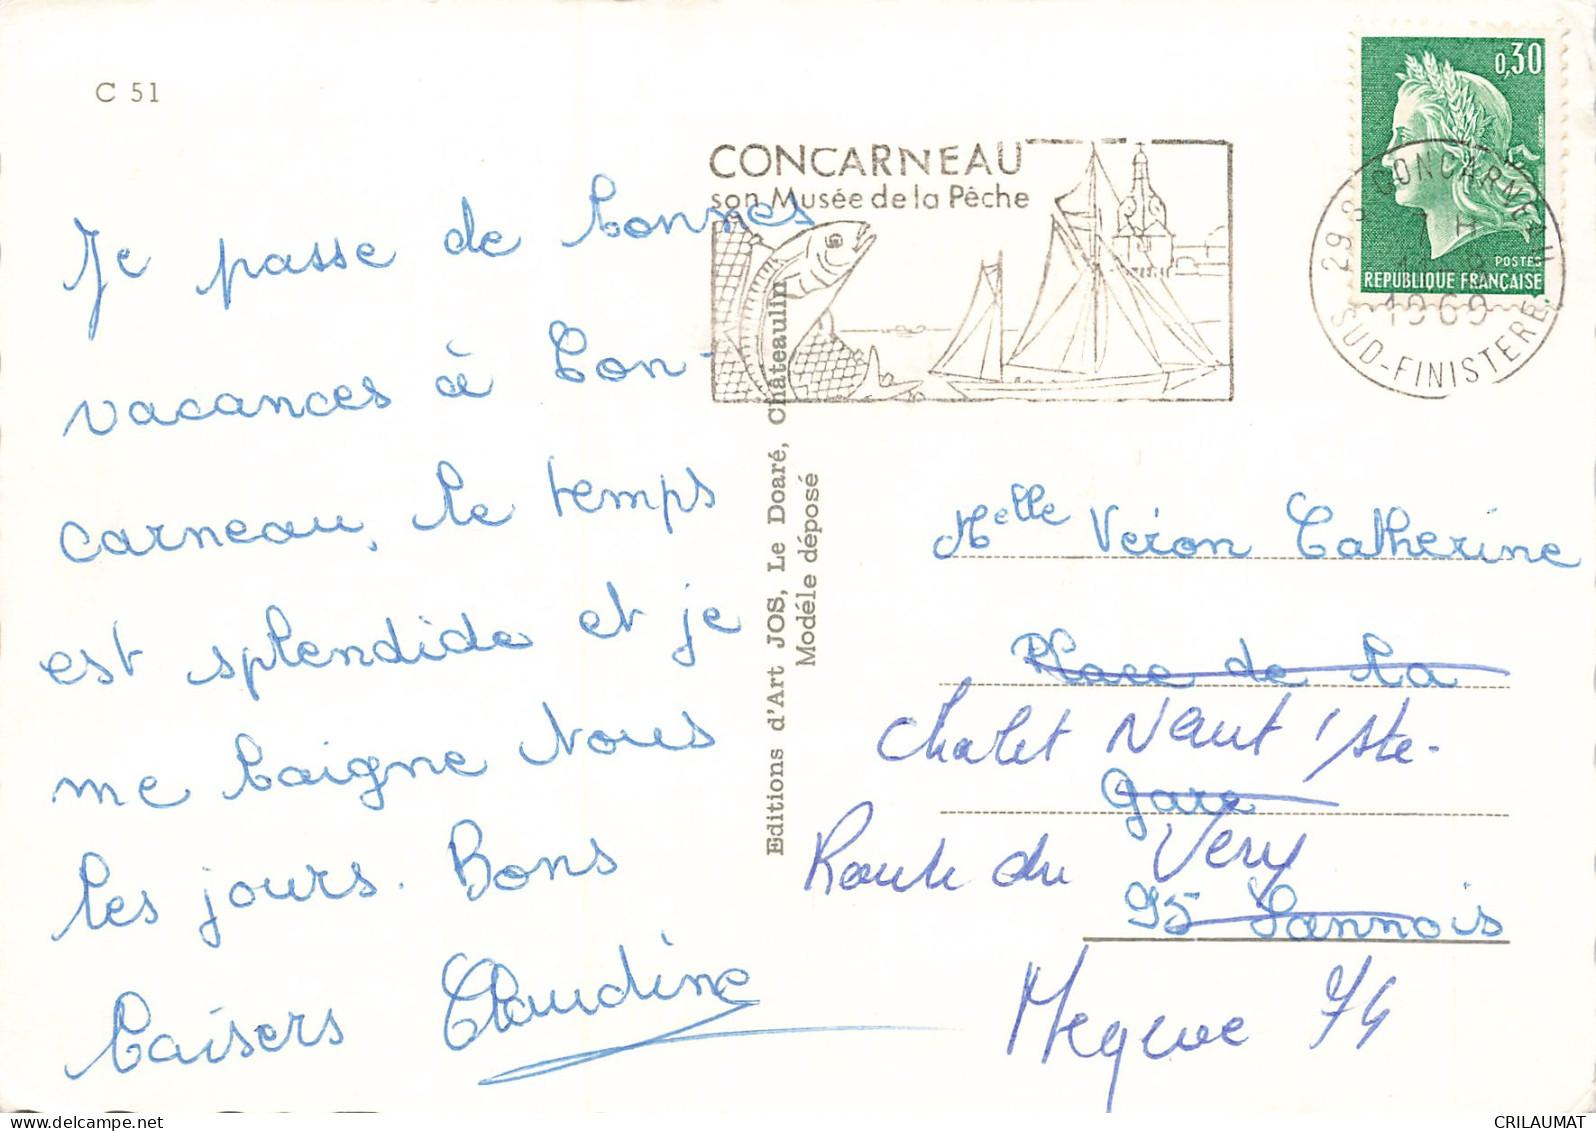 C 51
Je passe de bonnes
vacances à Con-
carneau, le temps
est splendide et je
me baigne tous
les jours. Bons
baisers Claudine
Editions d'Art JOS, Le Doaré, Châteaulin
Modéle déposé
CONCARNEAU
son Musée de la Pêche
0,30
POSTES
REPUBLIQUE FRANÇAISE
29 S CONCARNEAU
7 H
1969
SUD-FINISTERE
Melle Veron Catherine
Place de la
Chalet Naut'Ste-
Gare
Route du Very
95 Sannois
Megeve 74
CRILAUMAT